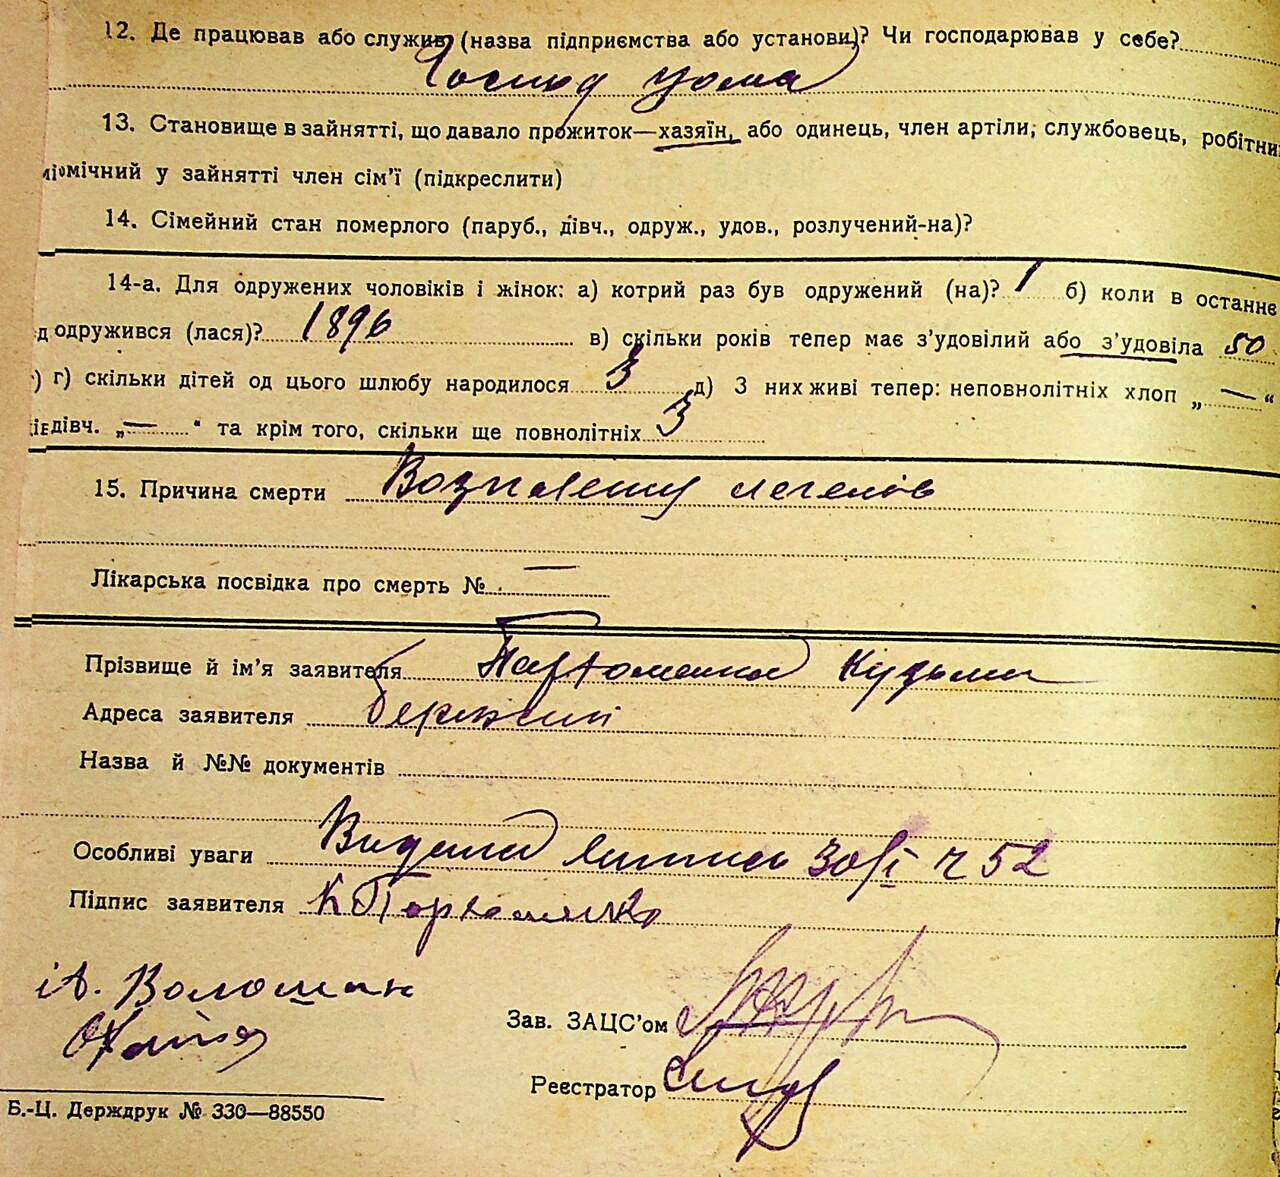 12. Де працював або служив (назва підприємства або установи)? Чи господарював у себе?
Господ удома
13. Становище в зайнятті, що давало прожиток—хазяїн, або одинець, член артіли, службовець, робітни
мічний у зайнятті член сім’ї (підкреслити)
14. Сімейний стан померлого (паруб., дівч., одруж., удов., розлучений-на)?
14-а. Для одружених чоловіків і жінок: а) котрий раз був одружений (на)? 1 б) коли в останнє
одружився (лася)? 1896 в) скільки років тепер має з’удовілий або з’удовіла 50
г) скільки дітей од цього шлюбу народилося 3 д) З них живі тепер: неповнолітніх хлоп „ — “
дівч. „ — “ та крім того, скільки ще повнолітніх 3
15. Причина смерти Возпалену легенів
Лікарська посвідка про смерть № —
Прізвище й ім’я заявителя Пархоменко Кузьма
Адреса заявителя
Назва й №№ документів
Особливі уваги Видана виппись 30/І ч 52
Підпис заявителя К Пархоменко
Волошан
Зав. ЗАЦС’ом
Реєстратор
Б.-Ц. Держдрук № 330—88550